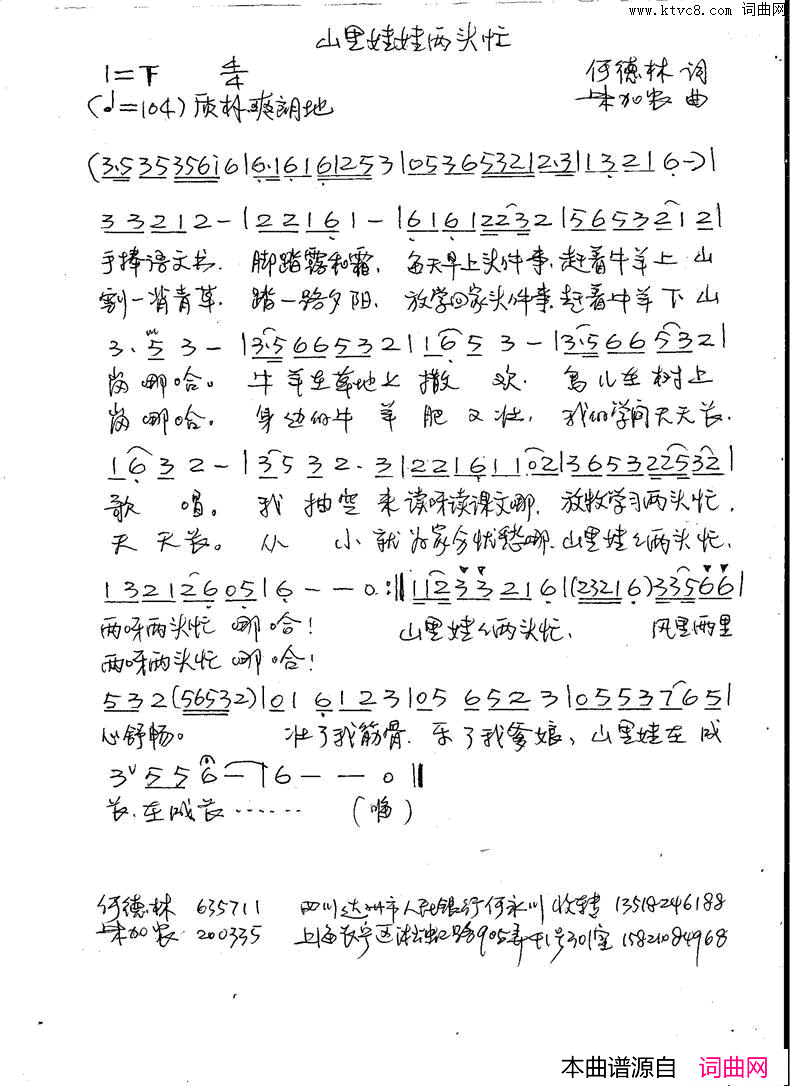 www.ktvc8.com 词曲网
山里娃娃两头忙
1=F 4/4 何德林 词
(♩=104) 质朴爽朗地 朱加农 曲
(3·5353561̇6|6·1616125 3|053653212·3|13216-)|
33212-|22161-|61612232|5653212|
手捧语文书. 脚踏露和霜. 每天早上头件事.赶着牛羊上 山
割一背青草. 踏一路夕阳. 放学回家头件事.赶着牛羊下 山
3· 5 3-|3·5665 32|16 5 3-|3·566532|
岗哪哈。 牛羊在草地上 撒 欢. 鸟儿在树上
岗哪哈。 身边的牛 羊 肥 又壮. 我的学问天天长.
16 3 2-|35 32·3|22161102|3653225 32|
歌 唱。 我 抽空 来读呀读课文哪. 放牧学习两头忙.
天 天长。 从 小就为家分忧愁哪.山里娃娃两头忙.
13212605|6--0:‖112332 16|(23216)33566|
两呀两头忙 哪哈! 山里娃娃两头忙. 风里雨里
两呀两头忙 哪哈!
532(56532)|01 6123|05 6523|0553765|
心舒畅。 壮了我筋骨. 乐了我爹娘. 山里娃在 成
3 5 5 6-|6--0‖
长.在成长…… (嗨)
何德林 635711 四川达州市人民银行何永川 收转 13518246188
朱加农 200335 上海长宁区淞虹路905弄41号301室 15821084968
本曲谱源自 词曲网